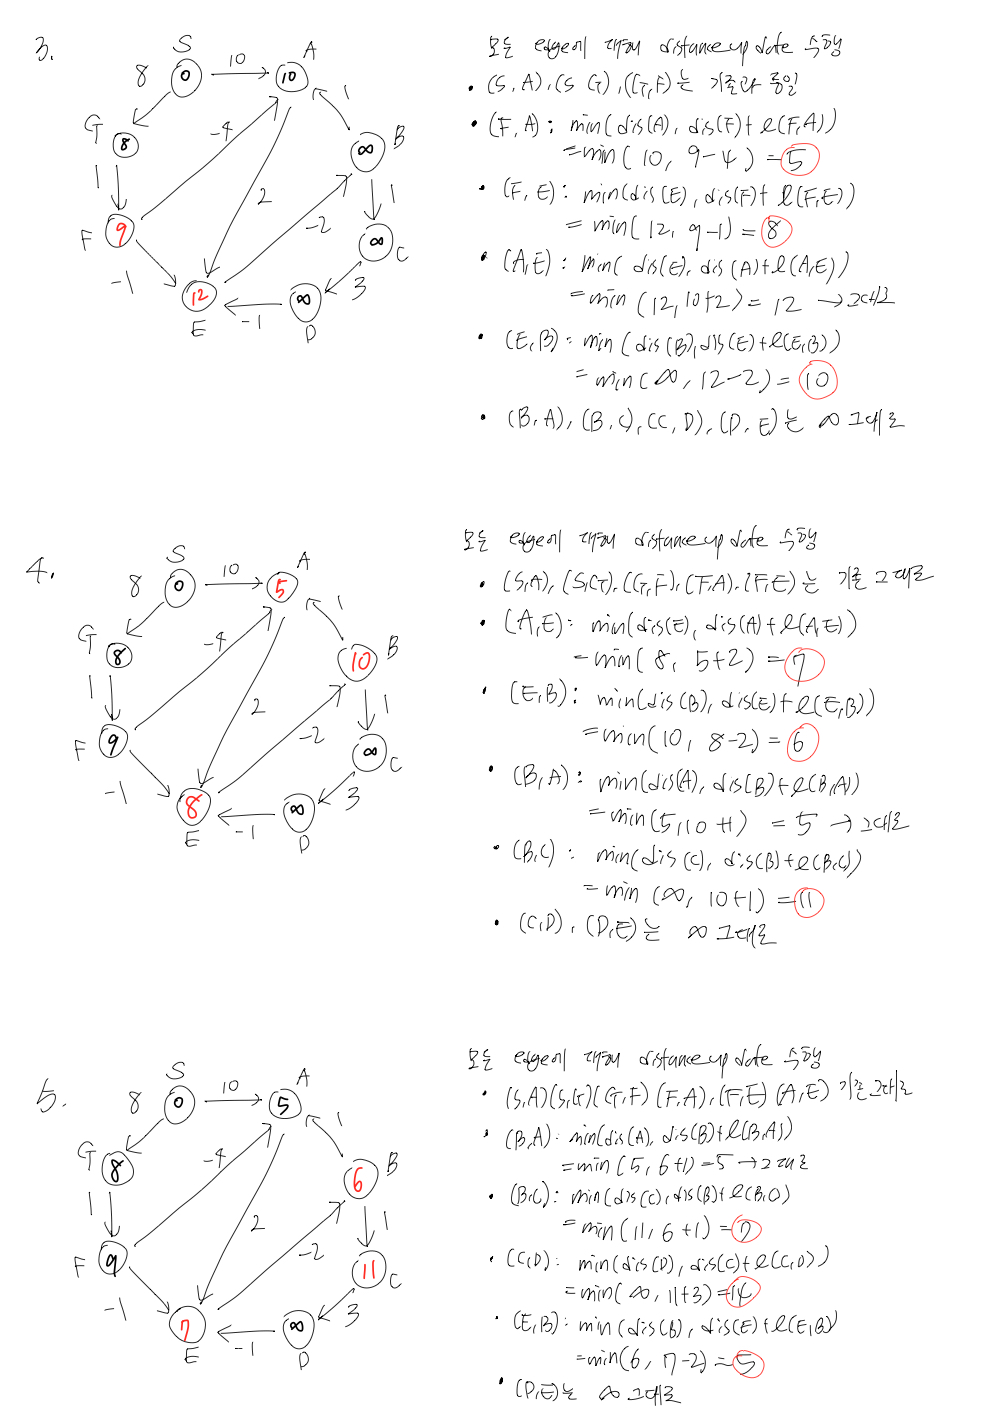 3.
S
8
0
10
A
10
G
8
-4
1
1
B
∞
2
1
F
9
-2
∞
C
-1
12
∞
3
E
-1
D
모든 edge에 대해 distance update 수행
• (S, A), (S G), (G,F)는 기존과 동일
• (F, A) : min(dis(A), dis(F)+ℓ(F,A))
=min( 10, 9-4 ) = 5
• (F, E) : min(dis(E), dis(F)+ℓ(F,E))
= min( 12, 9-1) = 8
• (A,E) : min( dis(E), dis(A)+ℓ(A,E))
=min (12, 10+2) = 12 → 그대로
• (E,B) : min (dis(B), dis(E)+ℓ(E,B))
= min( ∞, 12-2) = 10
• (B, A), (B, C), (C, D), (D, E)는 ∞ 그대로
4.
S
8
0
10
A
5
G
8
-4
1
1
B
10
2
1
F
9
-2
∞
C
-1
8
∞
3
E
-1
D
모든 edge에 대해 distance update 수행
• (S,A), (S,G), (G,F), (F,A), (F,E)는 기존 그대로
• (A,E) : min(dis(E), dis(A)+ℓ(A,E))
=min( 8, 5+2) = 7
• (E,B) : min(dis(B), dis(E)+ℓ(E,B))
=min(10, 8-2) = 6
• (B,A) : min(dis(A), dis(B)+ℓ(B,A))
=min(5,10+1) = 5 → 그대로
• (B,C) : min(dis(C), dis(B)+ℓ(B,C))
= min (∞, 10+1) = 11
• (C,D), (D,E)는 ∞ 그대로
5.
S
8
0
10
A
5
G
8
-4
1
1
B
6
2
1
F
9
-2
11
C
-1
7
∞
3
E
-1
D
모든 edge에 대해 distance update 수행
• (S,A)(S,G)(G,F) (F,A), (F,E) (A,E) 기존 그대로
• (B,A) : min(dis(A), dis(B)+ℓ(B,A))
=min (5, 6+1) = 5 → 그대로
• (B,C) : min(dis(C), dis(B)+ℓ(B,C))
= min(11, 6+1) = 7
• (C,D) : min(dis(D), dis(C)+ℓ(C,D))
= min( ∞, 11+3) = 14
• (E,B) : min(dis(B), dis(E)+ℓ(E,B))
=min(6, 7-2) = 5
• (D,E)는 ∞ 그대로